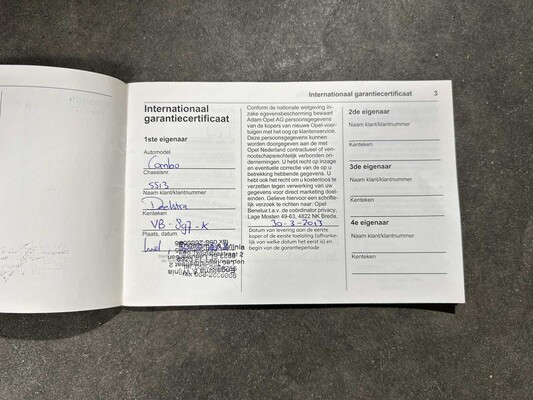 Internationaal garantiecertificaat 3
Internationaal
garantiecertificaat
1ste eigenaar
Automodel
Combo
Chassisnr.
5513
Naam klant/klantnummer
Kenteken
VB-897-K
Plaats, datum
Conform de nationale wetgeving in-
zake egevensbescherming bewaart
Adam Opel AG persoonsgegevens
van de kopers van nieuwe Opel-voer-
tuigen met het oog op klantenservice.
Deze persoonsgegevens kunnen
worden doorgegeven aan de met
Opel Nederland contractueel of ven-
nootschapsrechtelijk verbonden on-
dernemingen. U hebt recht op inzage
en eventuele correctie van de op u
betrekking hebbende gegevens. U
hebt ook het recht om u kosteloos te
verzetten tegen verwerking van uw
gegevens voor direct marketing doel-
einden. Gelieve hiervoor een schrifte-
lijk verzoek te richten naar: Opel
Benelux t.a.v. de coördinator privacy,
Lage Mosten 49-63, 4822 NK Breda.
30-3-2013
Datum van levering aan de eerste
koper of de eerste toelating (afhanke-
lijk van welke datum het eerst is) en
begin van de garantieperiode
2de eigenaar
Naam klant/klantnummer
Kenteken
3de eigenaar
Naam klant/klantnummer
Kenteken
4e eigenaar
Naam klant/klantnummer
Kenteken